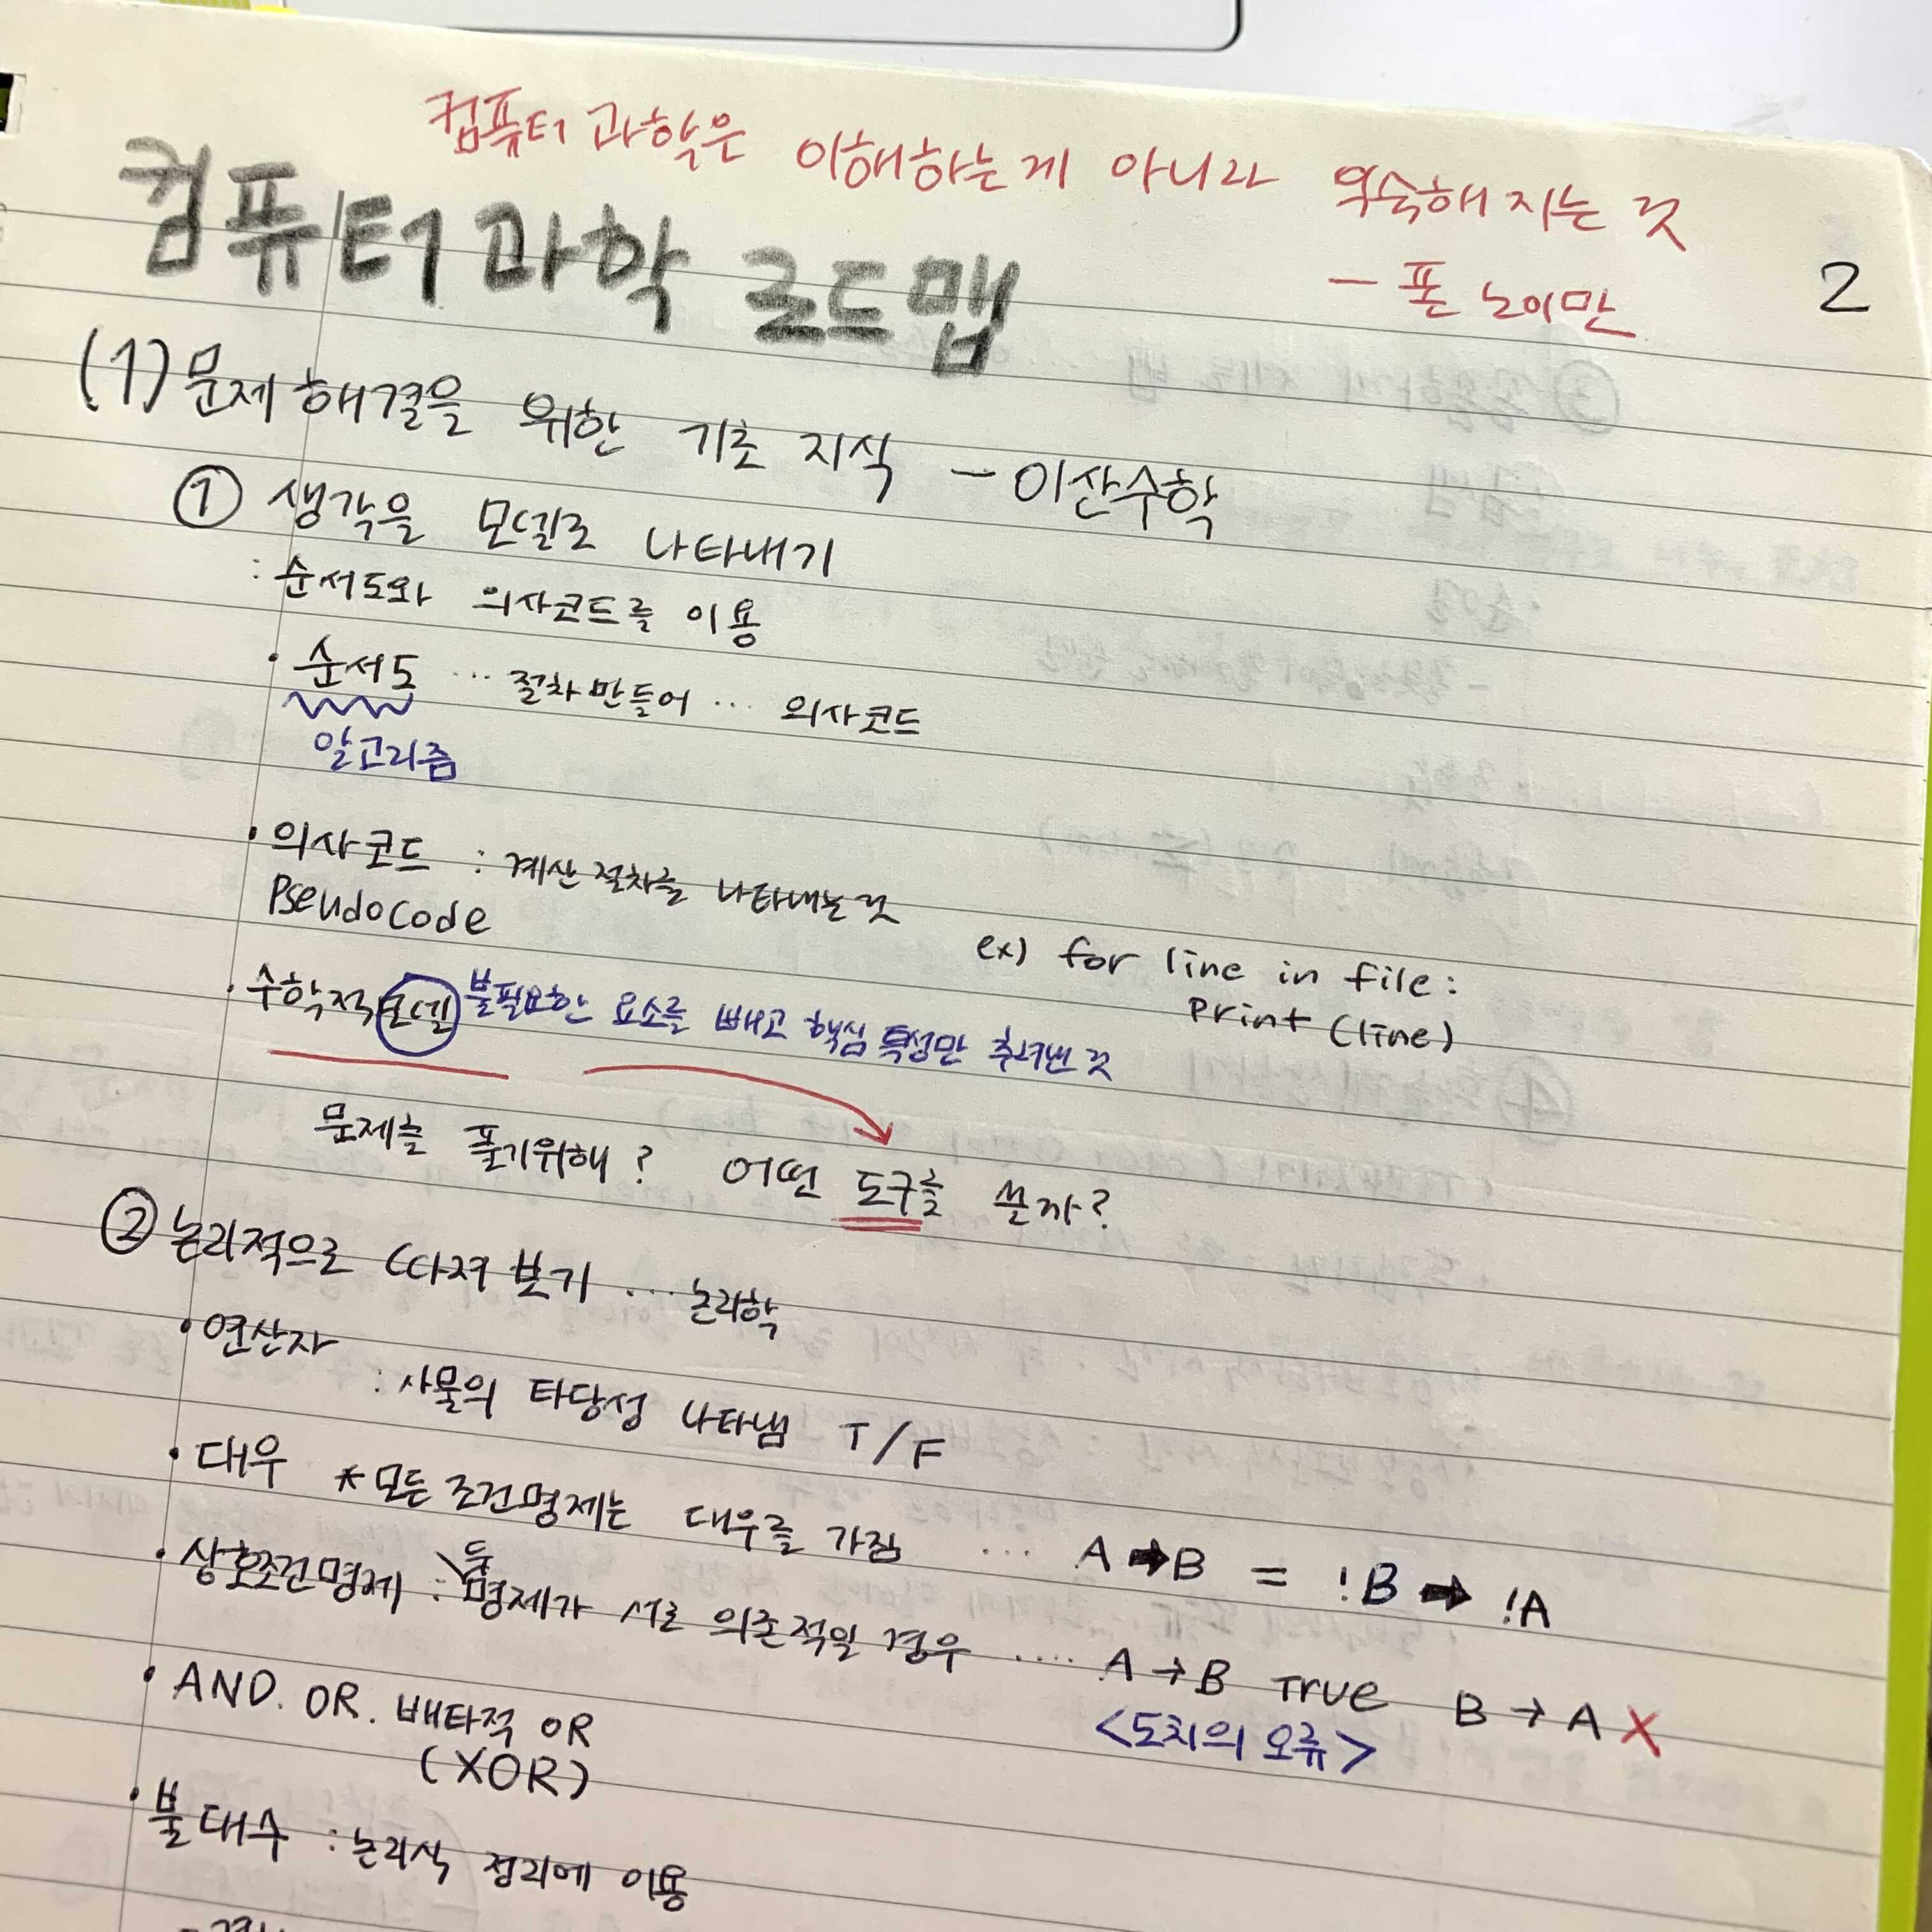 컴퓨터 과학은 이해하는게 아니라 익숙해지는 것
- 폰 노이만
2
컴퓨터 과학 로드맵
(1) 문제 해결을 위한 기초 지식 - 이산수학
① 생각을 모델로 나타내기
: 순서도와 의사코드를 이용
• 순서도 ... 절차만들어 ... 의사코드
알고리즘
• 의사코드 : 계산 절차를 나타내는 것
Pseudocode
ex) for line in file:
print (line)
• 수학적 모델 불필요한 요소를 빼고 핵심 특성만 추려낸 것
문제를 풀기위해? 어떤 도구를 쓸까?
② 논리적으로 따져 보기 ... 논리학
• 연산자
: 사물의 타당성 나타냄 T/F
• 대우 *모든 조건명제는 대우를 가짐 ... A → B = !B → !A
• 상호조건명제 : 두 명제가 서로 의존적일 경우 .... A → B True B → A X
<도치의 오류>
• AND. OR. 배타적 OR
(XOR)
• 불 대수 : 논리식 정리에 이용